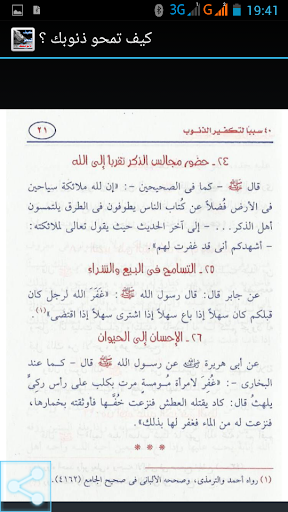 3G G 19:41
كيف تمحو ذنوبك ؟
٤٠ سبباً لتكفير الذنوب
٢١
٢٤ - حضور مجالس الذكر تقربا إلى الله
قال ﷺ - كما فى الصحيحين -: «إن لله ملائكة سياحين
فى الأرض فُضلاً عن كُتاب الناس يطوفون فى الطرق يلتمسون
أهل الذكر... - إلى آخر الحديث حيث يقول تعالى للملائكته:
- أشهدكم أنى قد غفرت لهم».
٢٥ - التسامح فى البيع والشراء
عن جابر قال: قال رسول الله ﷺ: «غَفَرَ الله لرجل كان
قبلكم كان سهلاً إذا باع سهلاً إذا اشترى سهلاً إذا اقتضى»(١).
٢٦ - الإحسان إلى الحيوان
عن أبى هريرة عن رسول الله ﷺ قال - كما عند
البخارى -: «غُفِرَ لامرأة مُومسة مرت بكلب على رأس ركىٍّ
يلهثُ قال: كاد يقتله العطش فنزعت خُفَّها فأوثقته بخمارها،
فنزعت له من الماء فغفر لها بذلك».
* * *
(١) رواه أحمد والترمذى، وصححه الألبانى فى صحيح الجامع (٤١٦٢).